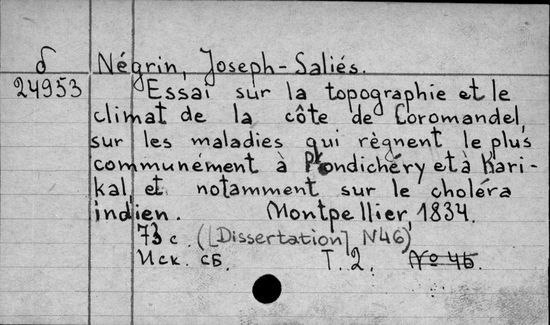 δ Négrin, Joseph-Saliés.
24953 Essai sur la topographie et le
climat de la côte de Coromandel,
sur les maladies qui règnent le plus
communément à Pondichéry et à Kari-
kal, et notamment sur le choléra
indien. Montpellier, 1834.
73 с. ([Dissertation] N46)
Иск. сб. Т. 2. № 46.